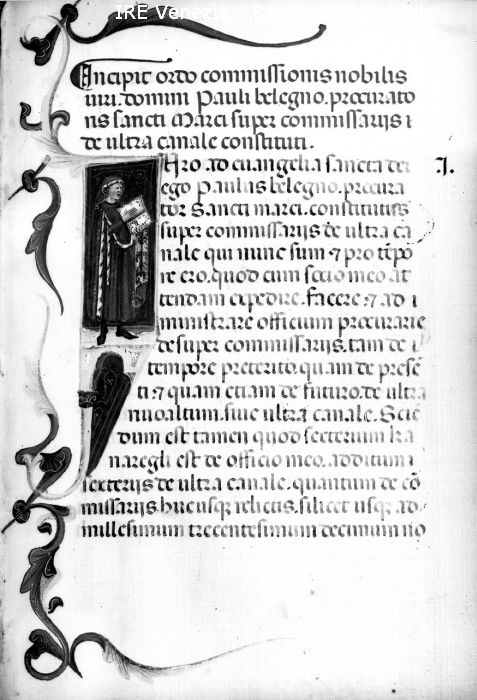 IRE Venezia
Incipit ordo commissionis nobilis
uiri. domini Pauli belegno. procurato
ris sancti Marci super commissarijs i
de ultra canale constituti.
Juro ad euangelia sancta dei
I.
ego Paulus belegno. procura
tor Sancti marci. constitutus
super commissarijs de ultra ca
nale qui nunc sum ⁊ pro tẽpo
re ero. quod cum socio meo at
tendam expedire. facere ⁊ ad i
ministrare officium procuracie
de super commissarijs. tam de i
tempore preterito. quam de presẽ
ti. ⁊ quam etiam de futuro. de ultra
riuoaltum. siue ultra canale. Sciẽ
dum est tamen quod sexterium
est de officio meo. additum i
sexterijs de ultra canale. quantum de cõ
missarijs. hucusq; relictis. silicet usq; ad
millesimum trecentesimum decimum no